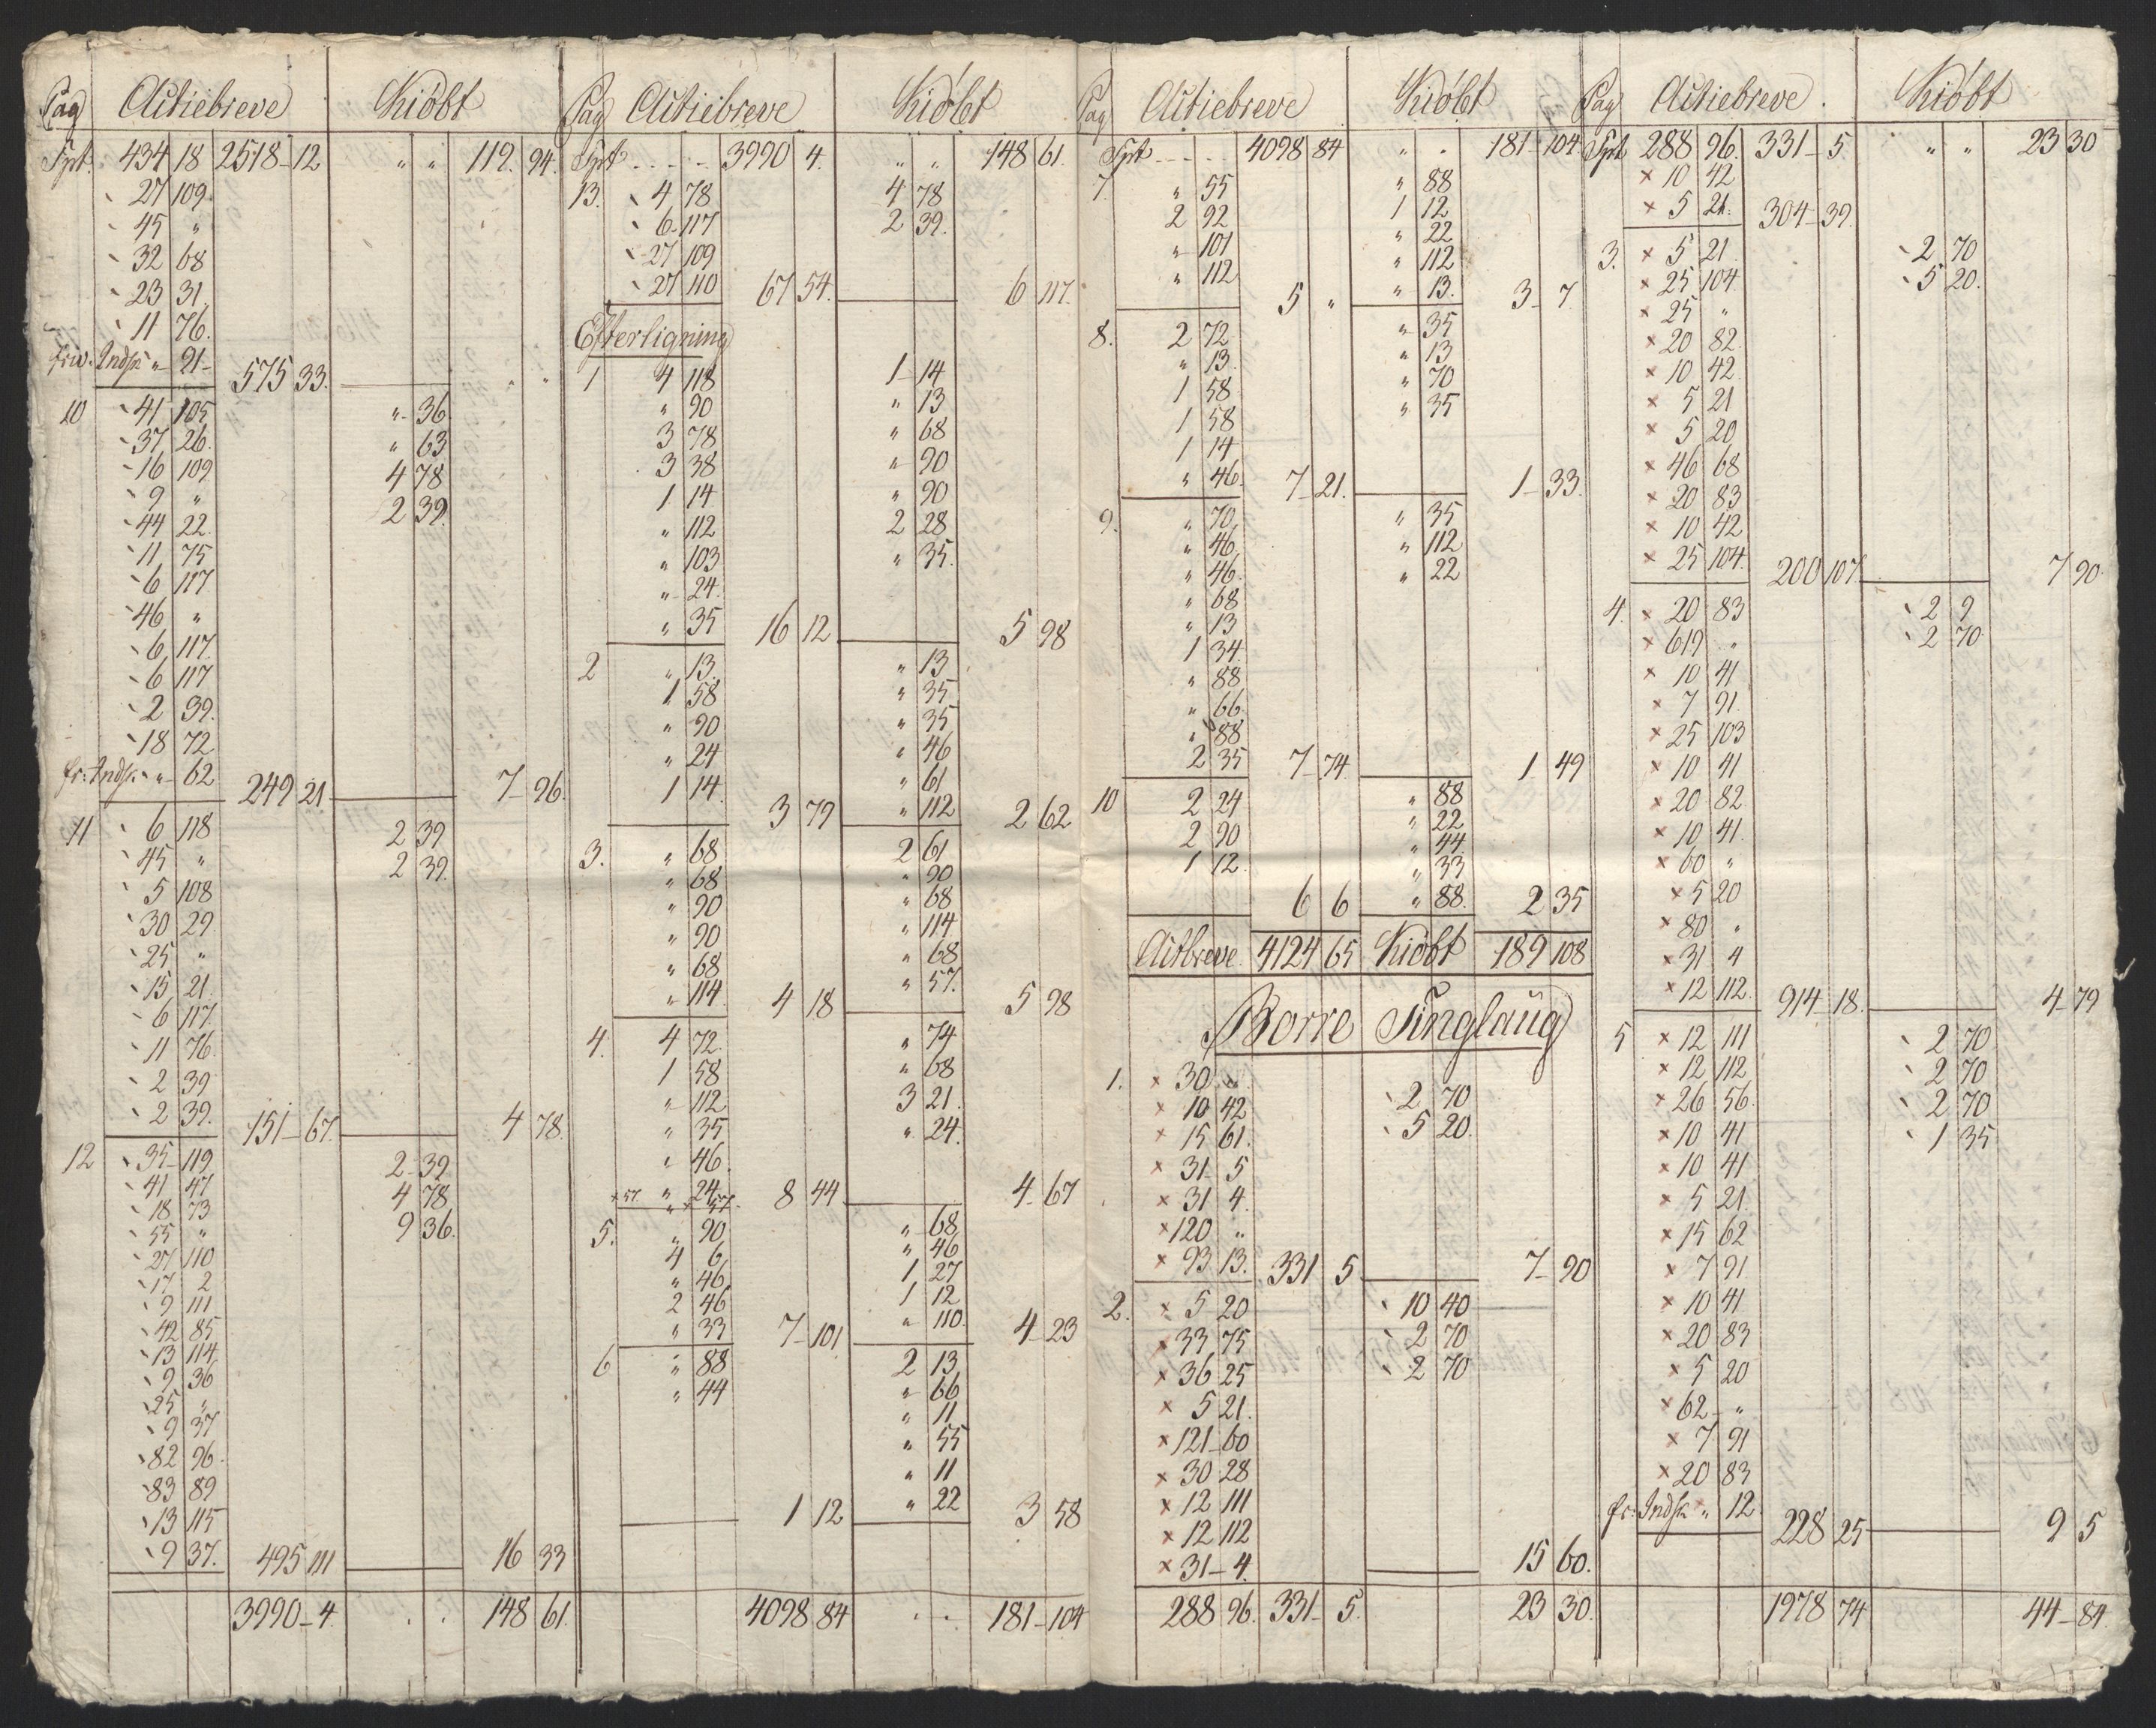 Pag Actiebreve Kiöbt
Spt. 434 18 2518 - 12 " " 119. 94.
27 109.
45 "
32 68
23 31.
11 76.
friv. Indsk " - 91 - 575 33.
10 41 105 " - 36.
37 26. " 63
16 109 4 78
9 " 2 39.
44 22.
11 75
6 117
46 "
6 117.
6 117
2 39.
18 72
fr: Indsk. " - 62 249 21 7 - 96.
11 6 118 2 39
45 " 2 39.
5 108
30 29
25 "
15 21.
6 117.
11 76.
2 39
2 39. 151 - 67. 4 78.
12 35 - 119 2 - 39
41 47 4 78
18 73 9 36.
55 "
27 110
17 2
9 111
42 85
13 114
9 36
25 "
9 37
82 96.
83 89
13 115
9 37. 495 111 16 33
3990 - 4. 148 61.

Pag Actiebreve Kiöbt
Spt - - - 3990 4. " " 148 61.
13. 4 78 4 78
6 - 117 2 39.
27 109
27 110 67 54. 6 117.
Efterligning
1 4 118 1 - 14
" 90 " 13
3 78 " 68
3 38 " 90
1 14 " 90
" 112 2 28
" 103 " 35.
" 24.
" 35 16 12 5 98
2 " 13. " 13
1 58 " 35
" 90 " 35
" 24 " 46
1 14. " 61
3 79 " 112 2 62
3. " 68 2 61
" 68 " 90
" 90 " 68
" 90 " 114
" 68 " 68
" 114. 4 18 " 57. 5 98
4. 4 72. " 74
1 58 " 68
" 112 3 21.
" 35 " 24.
" 46.
" 24 8 44 4 - 67
5. " 90 " 68
4 6 " 46
" 46. 1 27
2 46 1 12
" 33 7 - 101 " 110. 4 - 23
6 " 88 2 13
" 44 " 66
" 11
" 55
" 11
1 12 " 22 3 58
4098 84 181 - 104

Pag Actiebreve Kiöbt
Spt - - - 4098 84 " " 181 - 104
7. " 55 " 88
2 92 1 12
" 101 " 22
" 112 " 112
5 " " 13. 3 - 7
8. 2 72 " 35
" 13. " 13
1 58 " 70
1 58 " 35
1 14
" 46. 7 - 21. 1 - 33.
9. " 70 " 35
" 46 " 112
" 46. " 22
" 68
" 13
1 34.
" 88
" 66
" 88
2 35 7 - 74. 1 49
10 2 24 " 88
2 90 " 22
1 12. " 44
" 33
6 6 " 88. 2 35
Actbreve 4124 65 Kiöbt 189 108
Borre Tinglaug
1. × 30 " 2 70
× 10 42 5 20.
× 15 61.
× 31 - 5
× 31 4.
× 120 "
× 93 13. 331 5 7 - 90
2. × 5 20 10 40
× 33 75 2 70
× 36 25 2 70
× 5 21.
× 121 - 60
× 30 28
× 12 111
× 12 112
× 31 - 4. 15 60.
288 96. 331 - 5. 23 30.

Pag Actiebreve. Kiöbt
Spt 288 96. 331 - 5 " " 23 30
× 10 42
× 5 21. 304 - 39.
3. × 5 21 2 70
× 25 104 5 20.
× 25 "
× 20 82.
× 10 42
× 5 21
× 5 20
× 46 68
× 20 83
× 10 42
× 25 104. 200 107 7 90
4. × 20 83 2 9
× 619 " 2 70
× 10 41
× 7 91.
× 25 103
× 10 41
× 20 82
× 10 41.
× 60 "
× 5 20
× 80 "
× 31 4
× 12 112. 914 - 18. 4 - 79
5 × 12 111 2 70
× 12 112 2 70
× 26 56. 2 70
× 10 41 1 35
× 10 41
× 5 21
× 15 62
× 7 91
× 10 41
× 20 83
× 5 20
× 62 - "
× 7 91
× 20 83
fr: Indsk " 12. 228 25 9 5
1978 74 44 - 84.